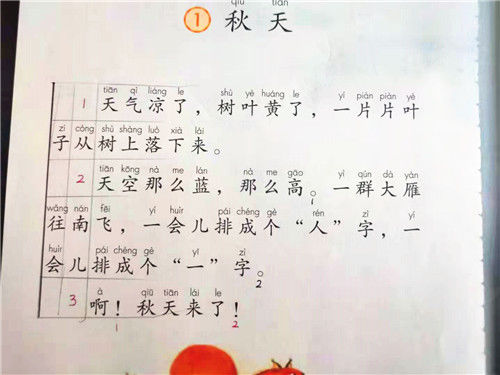 qiū tiān
1 秋天
tiān qì liáng le shù yè huáng le yí piàn piàn yè
1 天气凉了，树叶黄了，一片片叶
zi cóng shù shàng luò xià lái
子从树上落下来。
tiān kōng nà me lán nà me gāo yì qún dà yàn
2 天空那么蓝，那么高。1 一群大雁
wǎng nán fēi yí huìr pái chéng gè rén zì yí
往南飞，一会儿排成个“人”字，一
huìr pái chéng gè yī zì
会儿排成个“一”字。2
à qiū tiān lái le
3 啊！秋天来了！
1 2